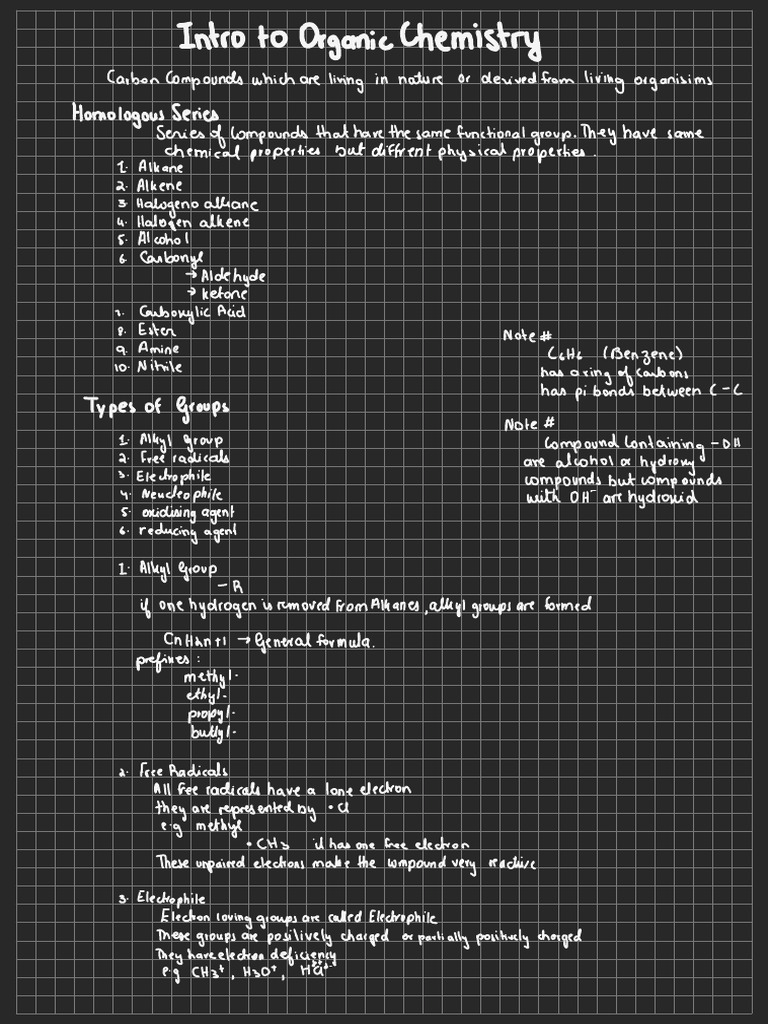 Intro to Organic Chemistry
Carbon Compounds which are living in nature or derived from living organisims
Homologous Series
Series of Compounds that have the same functional group. They have same
chemical properties but diffrent physical properties.
1. Alkane
2. Alkene
3. Halogeno alkane
4. Halogen alkene
5. Alcohol
6. Carbonyl
→ Aldehyde
→ ketone
7. Carboxylic Acid
8. Ester
9. Amine
10. Nitrile
Note #
C6H6 (Benzene)
has a ring of carbons
has pi bonds between C-C
Note #
Compound Containing -OH
are alcohol or hydroxy
compounds but compounds
with OH⁻ are hydroxid
Types of Groups
1. Alkyl group
2. Free radicals
3. Electrophile
4. Neucleophile
5. oxidising agent
6. reducing agent
1. Alkyl Group
- R
if one hydrogen is removed from Alkanes, alkyl groups are formed
CnH2n+1 → General formula.
prefixes:
methyl.
ethyl.
propyl.
butlyl.
2. Free Radicals
All free radicals have a lone electron
they are represented by •Cl
e.g methyl
•CH3 it has one free electron
These unpaired electrons make the compound very reactive
3. Electrophile
Electron loving groups are called Electrophile
These groups are positively charged or partially positively charged
They have electron deficiency
e.g CH3⁺, H3O⁺,